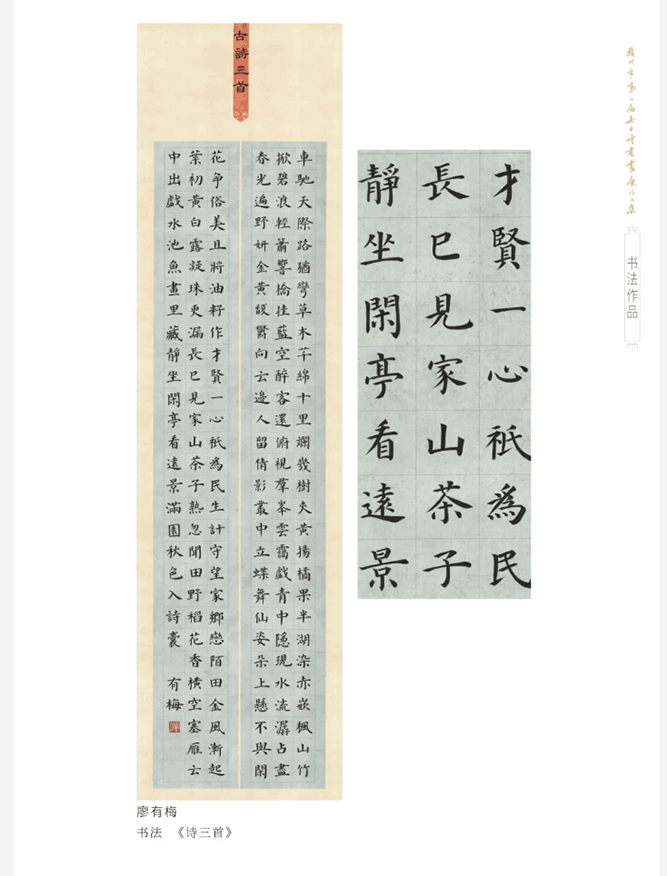 古詩三首
車馳天際路猶彎草木芊綿十里斕幾樹夾黃揚橘果半湖染赤嵌楓山竹
掀碧浪輕蕭響檐挂藍空醉客還俯視羣峯雲靄戲青中隱現水流潺占盡
春光遍野妍金黃馥鬱向云邊人留倩影叢中立蝶舞仙姿朵上懸不與閑
花爭俗美且將油籽作才賢一心祇爲民生計守望家鄉戀陌田金風漸起
葉初黃白露凝珠更漏長已見家山茶子熟忽聞田野稻花香橫空塞雁云
中出戲水池魚畫里藏靜坐閑亭看遠景滿園秋色入詩囊 有梅
才賢一心祇爲民
長已見家山茶子
靜坐閑亭看遠景
书法作品
廖有梅
书法 《诗三首》